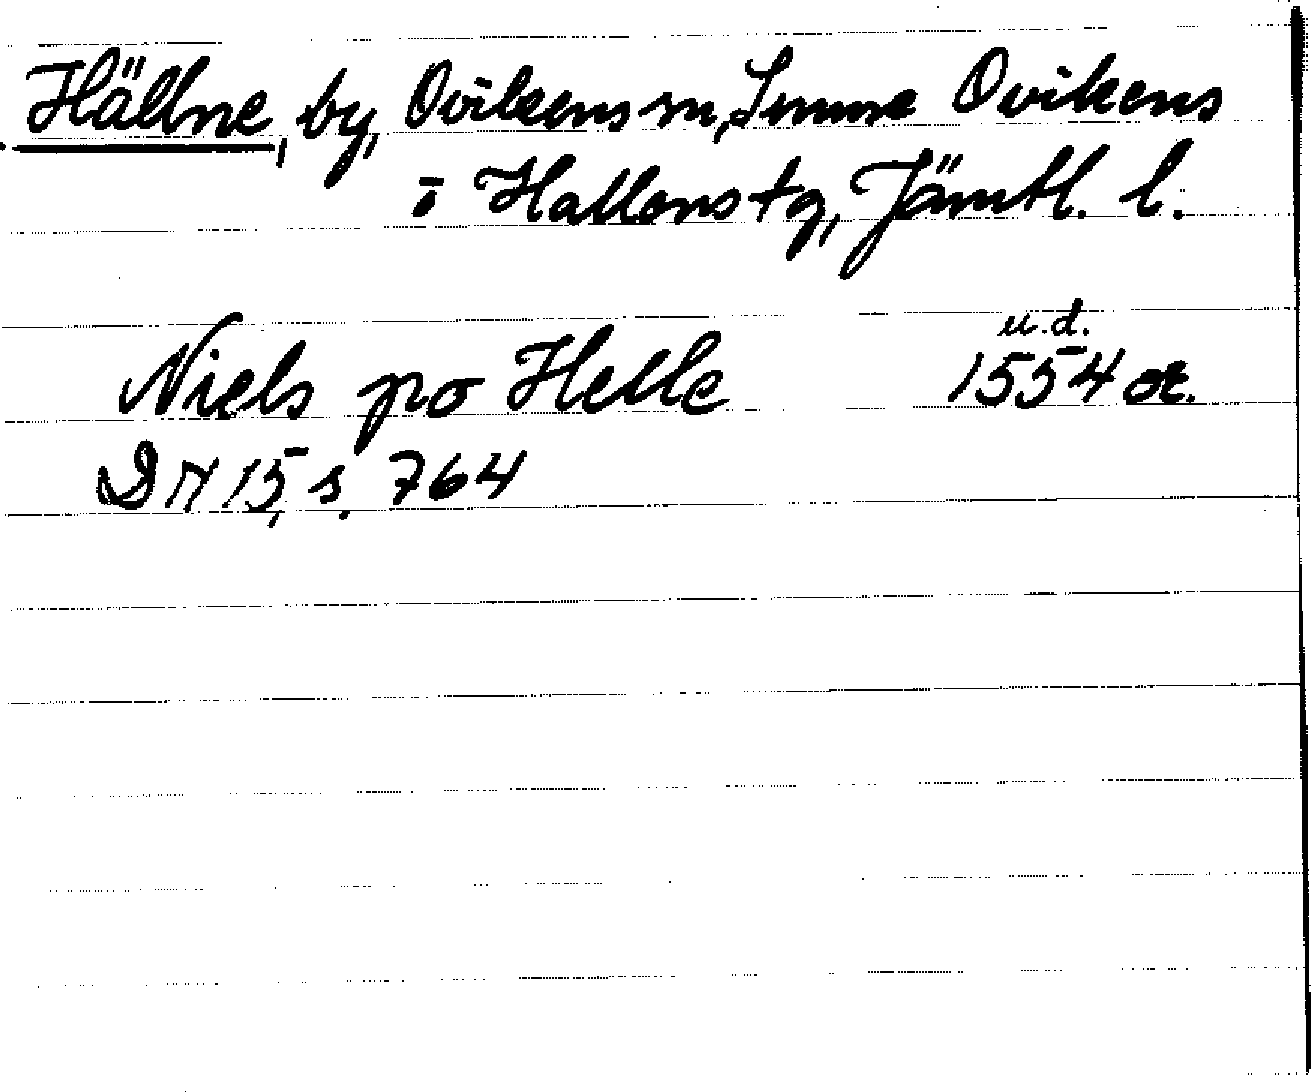 Hällne, by, Ovikens sn, Sunne Ovikens
o Hallens tg, Jämtl. l.
u.d.
Niels po Helle 1554 or.
DN 15, s. 764